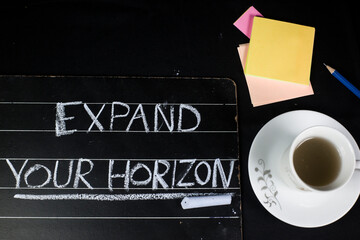 EXPAND
YOUR HORIZON